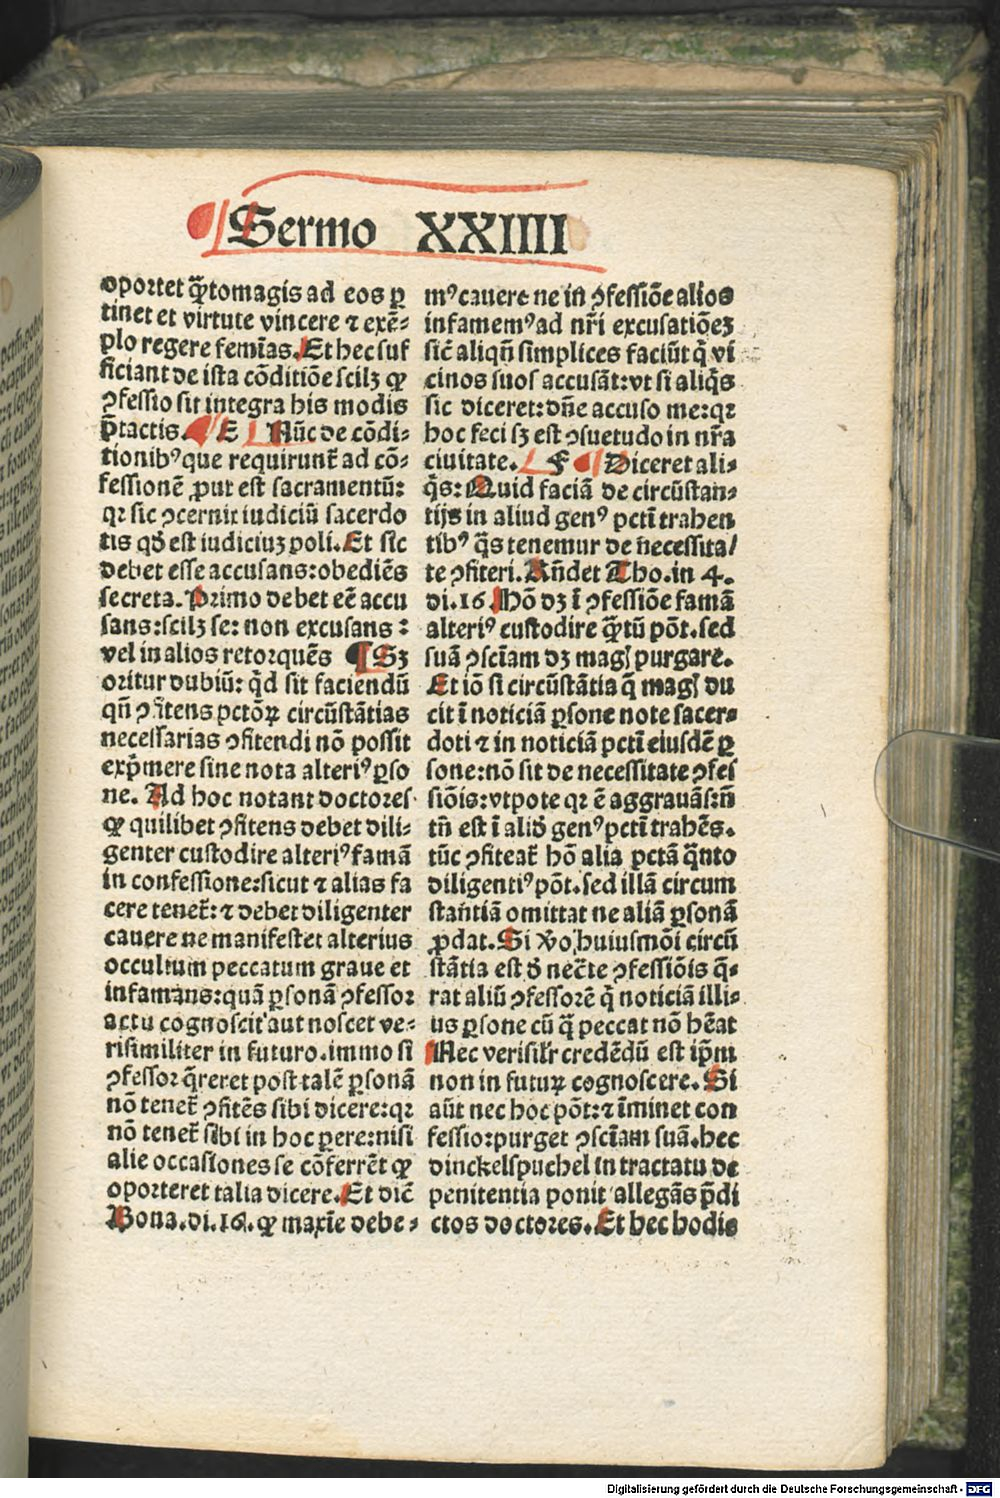 Sermo XXIIII
oportet q̄tomagis ad eos ꝑ
tinet et virtute vincere ⁊ exē-
plo regere femīas. Et hec suf
ficiant de ista cōditiōe scilꝫ ꝙ
ꝯfessio sit integra his modis
p̄tactis. E Nūc de cōdi-
tionibꝰ que requirunt̄ ad cō-
fessionē ꝓut est sacramentū:
qꝛ sic ꝯcernit iudiciū sacerdo
tis qđ est iudiciuꝫ poli. Et sic
debet esse accusans: obediēs
secreta. Primo debet eē accu
sans: scilꝫ se: non excusans:
vel in alios retorquēs ¶ Sꝫ
oritur dubiū: q̄d sit faciendū
qn̄ ꝯfitens pctōꝝ circūstātias
necessarias ꝯfitendi nō possit
exp̄mere sine nota alteriꝰ ꝑso
ne. Ad hoc notant doctores
ꝙ quilibet ꝯfitens debet dili-
genter custodire alteriꝰ famā
in confessione: sicut ⁊ alias fa
cere tenet̄: ⁊ debet diligenter
cauere ne manifestet alterius
occultum peccatum graue et
infamans: quā ꝑsonā ꝯfessor
actu cognoscit aut noscet ve-
risimiliter in futuro. immo si
ꝯfessor q̄reret post talē ꝑsonā
nō tenet̄ ꝯfitēs sibi dicere: qꝛ
nō tenet̄ sibi in hoc ꝑere: nisi
alie occasiones se cōferrēt ꝙ
oporteret talia dicere. Et dic̄
Bona. di. 16. ꝙ maxīe debe-
mꝰ cauere ne in ꝯfessiōe alios
infamemꝰ ad nr̄i excusatiōeꝫ
sic̄ aliqn̄ simplices faciūt q̄ vi
cinos suos accusāt: vt si aliq̄s
sic diceret: dn̄e accuso me: qꝛ
hoc feci sꝫ est ꝯsuetudo in nr̄a
ciuitate. F ¶ Diceret ali-
q̄s: Quid faciā de circūstan-
tijs in aliud genꝰ pctī trahen
tibꝰ q̄s tenemur de necessita/
te ꝯfiteri. Rn̄det Tho. in 4.
di. 16. Hō dꝫ ī ꝯfessiōe famā
alteriꝰ custodire q̄tū pōt. sed
suā ꝯscīam dꝫ magꝭ purgare.
Et iō si circūstātia q̄ magꝭ du
cit ī noticiā ꝑsone note sacer-
doti ⁊ in noticiā pctī eiusdē ꝑ
sone: nō sit de necessitate ꝯfes
siōis: vtpote qꝛ ē aggrauās: n̄
tn̄ est ī aliđ genꝰ pctī trahēs.
tūc ꝯfiteat̄ hō alia pctā q̄nto
diligentiꝰ pōt. sed illā circum
stantiā omittat ne aliā ꝑsonā
ꝓdat. Si v̆o huiusmōi circū
stātia est đ nec̄te ꝯfessiōis q̄-
rat aliū ꝯfessorē q̄ noticiā illi-
us ꝑsone cū q̄ peccat nō hēat
Nec verisil̄r credēdū est ip̄m
non in futuꝝ cognoscere. Si
aūt nec hoc pōt: ⁊ īminet con
fessio: purget ꝯscīam suā. hec
dinckelspuchel in tractatu de
penitentia ponit allegās p̄di
ctos doctores. Et hec hodie
Digitalisierung gefördert durch die Deutsche Forschungsgemeinschaft - DFG